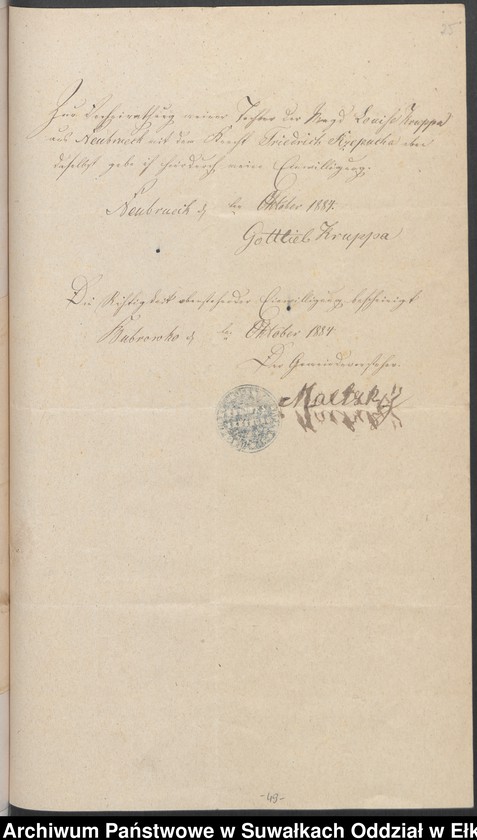 25
Zur Verheirathung meiner Tochter der Magd Louise Kruppa
aus Neubrück mit dem Knecht Friedrich Krzepucha
daselbst gebe ich hierdurch meine Einwilligung.
Neubrueck d. ten Oktober 1884.
Gottlieb Kruppa
Die Richtigkeit obenstehender Einwilligung bescheinigt
d. ten Oktober 1884
Der Gemeindevorsteher.
-49-
Archiwum Państwowe w Suwałkach Oddział w Ełk